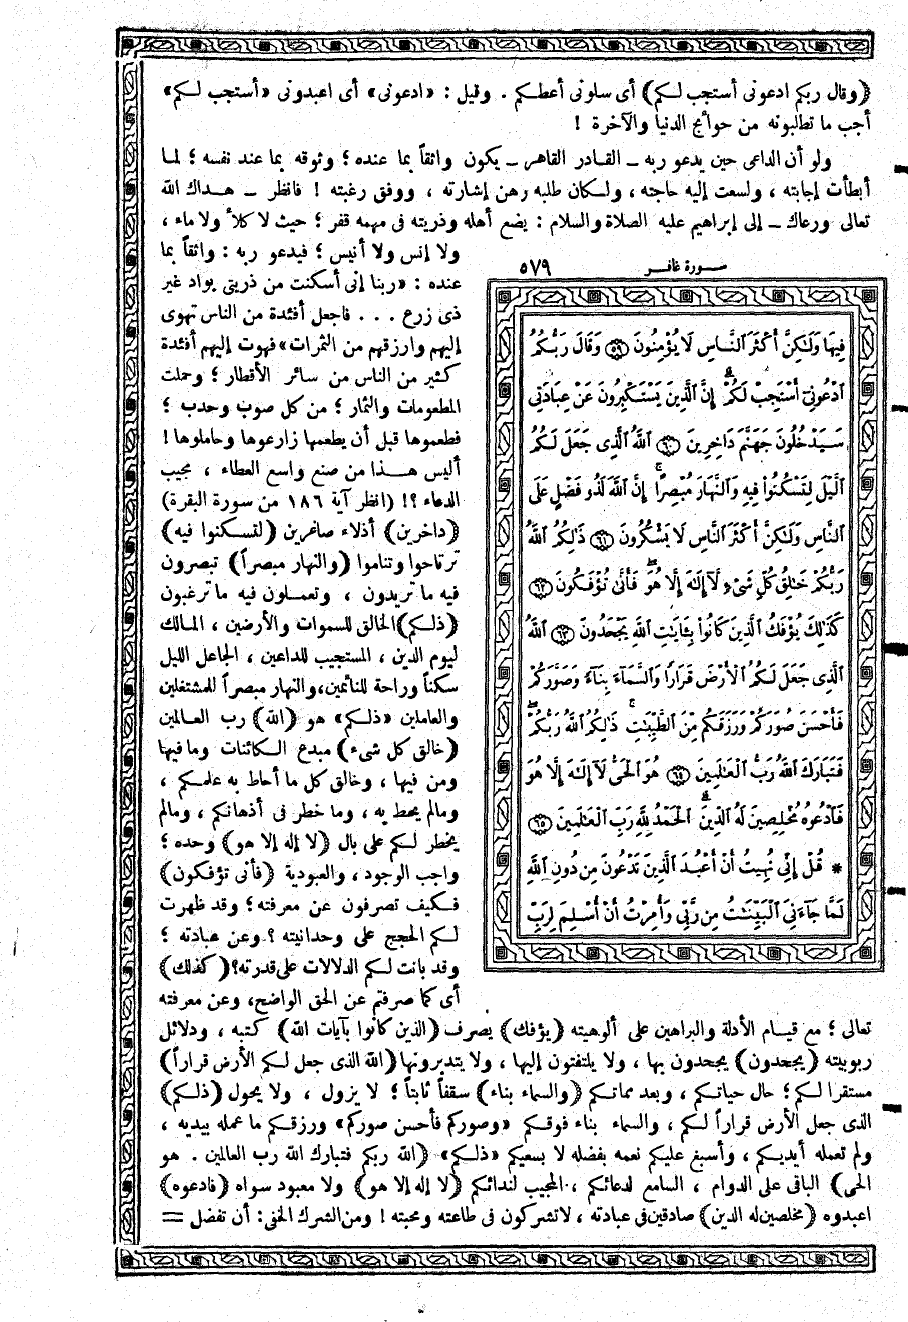 (وقال ربكم ادعونى أستجب لـكم) أى سلونى أعطـكم . وقيل : «ادعونى» أى اعبدونى «أستجب لـكم»
أجب ما تطلبونه من حوائج الدنيا والآخرة !
ولو أن الداعى حين يدعو ربه ــ القـادر القاهر ــ يكون واثقاً بما عنده ؛ وثوقه بما عند نفسه ؛ لمـا
أبطأت إجابته ، ولسعت إليه حاجته ، ولـكان طلبه رهن إشارته ، ووفق رغبته ! فانظر ــ هـداك الله
تعالى ورعاك ــ إلى إبراهيم عليه الصلاة والسلام : يضع أهله وذريته فى مهمه قفر ؛ حيث لا كلأ ولا ماء ،
ولا إنس ولا أنيس ؛ فيدعو ربه : واثقاً بما
عنده : «ربنا إنى أسكنت من ذريتى بواد غير
ذى زرع . . . فاجعل أفئدة من الناس تهوى
إليهم وارزقهم من الثمرات» فهوت إليهم أفئدة
كثير من الناس من سائر الأقطار ؛ وحملت
المطعومات والثمار ؛ من كل صوب وحدب ؛
فطعموها قبل أن يطعمها زارعوها وحاملوها !
أليس هـذا من صنع واسع العطاء ، مجيب
الدعاء ؟! (انظر آية ١٨٦ من سورة البقرة)
(داخرين) أذلاء صاغرين (لتسكنوا فيه)
ترتاحوا وتناموا (والنهار مبصراً) تبصرون
فيه ما تريدون ، وتعمـلون فيه ما ترغبون
(ذلـكم) الخالق للسموات والأرضين ، المـالك
ليوم الدين ، المستجيب للداعين ، الجاعل الليل
سكناً وراحة للنائمين، والنهار مبصراً للمشتغلين
والعاملين «ذلـكم» هو (الله) رب العـالمين
(خالق كل شىء) مبدع الـكائنات وما فيها
ومن فيها ، وخالق كل ما أحاط به علمـكم ،
ومالم يحط به ، وما خطر فى أذهانـكم ، ومالم
يخطر لـكم على بال (لا إله إلا هو) وحده ؛
واجب الوجود ، والعبودية (فأنى تؤفكون)
فـكيف تصرفون عن معرفته ؛ وقد ظهرت
لـكم الحجج على وحدانيته ؟ . وعن عبادته ؛
وقد بانت لـكم الدلالات على قدرته؟ (كذلك)
أى كما صرفتم عن الحق الواضح، وعن معرفته
سورة غافر ٥٧٩
فِيهَا وَلَـٰكِنَّ أَكْثَرَ ٱلنَّاسِ لَا يُؤْمِنُونَ ۝٥٩ وَقَالَ رَبُّكُمُ
ٱدْعُونِىٓ أَسْتَجِبْ لَكُمْ ۚ إِنَّ ٱلَّذِينَ يَسْتَكْبِرُونَ عَنْ عِبَادَتِى
سَيَدْخُلُونَ جَهَنَّمَ دَاخِرِينَ ۝٦٠ ٱللَّهُ ٱلَّذِى جَعَلَ لَكُمُ
ٱلَّيْلَ لِتَسْكُنُوا۟ فِيهِ وَٱلنَّهَارَ مُبْصِرًا ۚ إِنَّ ٱللَّهَ لَذُو فَضْلٍ عَلَى
ٱلنَّاسِ وَلَـٰكِنَّ أَكْثَرَ ٱلنَّاسِ لَا يَشْكُرُونَ ۝٦١ ذَٰلِكُمُ ٱللَّهُ
رَبُّكُمْ خَـٰلِقُ كُلِّ شَىْءٍ لَّآ إِلَـٰهَ إِلَّا هُوَ ۖ فَأَنَّىٰ تُؤْفَكُونَ ۝٦٢
كَذَٰلِكَ يُؤْفَكُ ٱلَّذِينَ كَانُوا۟ بِـَٔايَـٰتِ ٱللَّهِ يَجْحَدُونَ ۝٦٣ ٱللَّهُ
ٱلَّذِى جَعَلَ لَكُمُ ٱلْأَرْضَ قَرَارًا وَٱلسَّمَآءَ بِنَآءً وَصَوَّرَكُمْ
فَأَحْسَنَ صُوَرَكُمْ وَرَزَقَكُم مِّنَ ٱلطَّيِّبَـٰتِ ۚ ذَٰلِكُمُ ٱللَّهُ رَبُّكُمْ ۖ
فَتَبَارَكَ ٱللَّهُ رَبُّ ٱلْعَـٰلَمِينَ ۝٦٤ هُوَ ٱلْحَىُّ لَآ إِلَـٰهَ إِلَّا هُوَ
فَٱدْعُوهُ مُخْلِصِينَ لَهُ ٱلدِّينَ ۗ ٱلْحَمْدُ لِلَّهِ رَبِّ ٱلْعَـٰلَمِينَ ۝٦٥
* قُلْ إِنِّى نُهِيتُ أَنْ أَعْبُدَ ٱلَّذِينَ تَدْعُونَ مِن دُونِ ٱللَّهِ
لَمَّا جَآءَنِىَ ٱلْبَيِّنَـٰتُ مِن رَّبِّى وَأُمِرْتُ أَنْ أُسْلِمَ لِرَبِّ
تعالى ؛ مع قيـام الأدلة والبراهين على ألوهيته (يؤفك) يصرف (الذين كانوا بآيات الله) كتبه ، ودلائل
ربوبيته (يجحدون) يجحدون بها ، ولا يلتفتون إليها ، ولا يتدبرونها (الله الذى جعل لـكم الأرض قراراً)
مستقرا لـكم ؛ حال حياتـكم ، وبعد مماتـكم (والسماء بناء) سقفاً ثابتاً ؛ لا يزول ، ولا يحول (ذلـكم)
الذى جعل الأرض قراراً لـكم ، والسماء بناء فوقـكم «وصوركم فأحسن صوركم» ورزقـكم ما عمله بيديه ،
ولم تعمله أيديـكم ، وأسبغ عليـكم نعمه بفضله لا بسعيكم «ذلـكم» (الله ربكم فتبارك الله رب العالمين . هو
الحى) الباقى على الدوام ، السامع لدعائـكم ، المجيب لندائـكم (لا إله إلا هو) ولا معبود سواه (فادعوه)
اعبدوه (مخلصين له الدين) صادقين فى عبادته ، لا تشركون فى طاعته ومحبته ! ومن الشرك الخفى : أن تفضل ==